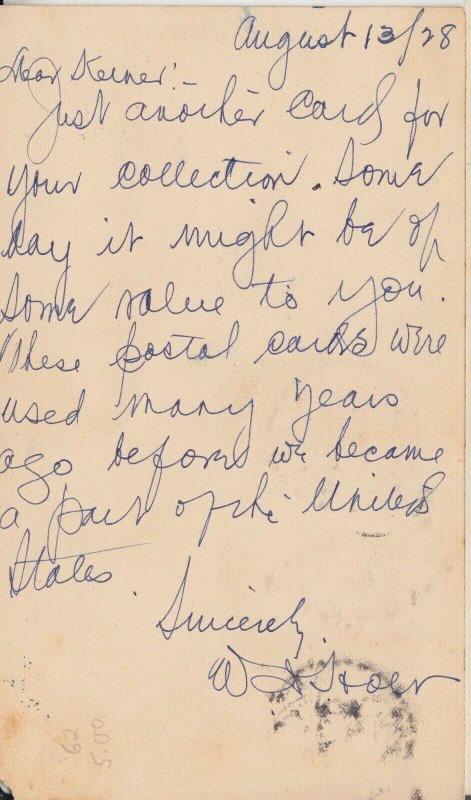 August 13/28
Dear Kerner:-
Just another card for
your collection. Some
day it might be of
some value to you.
These postal cards were
used many years
ago before we became
a part of the United
States
Sincerely,
W
62
5.00